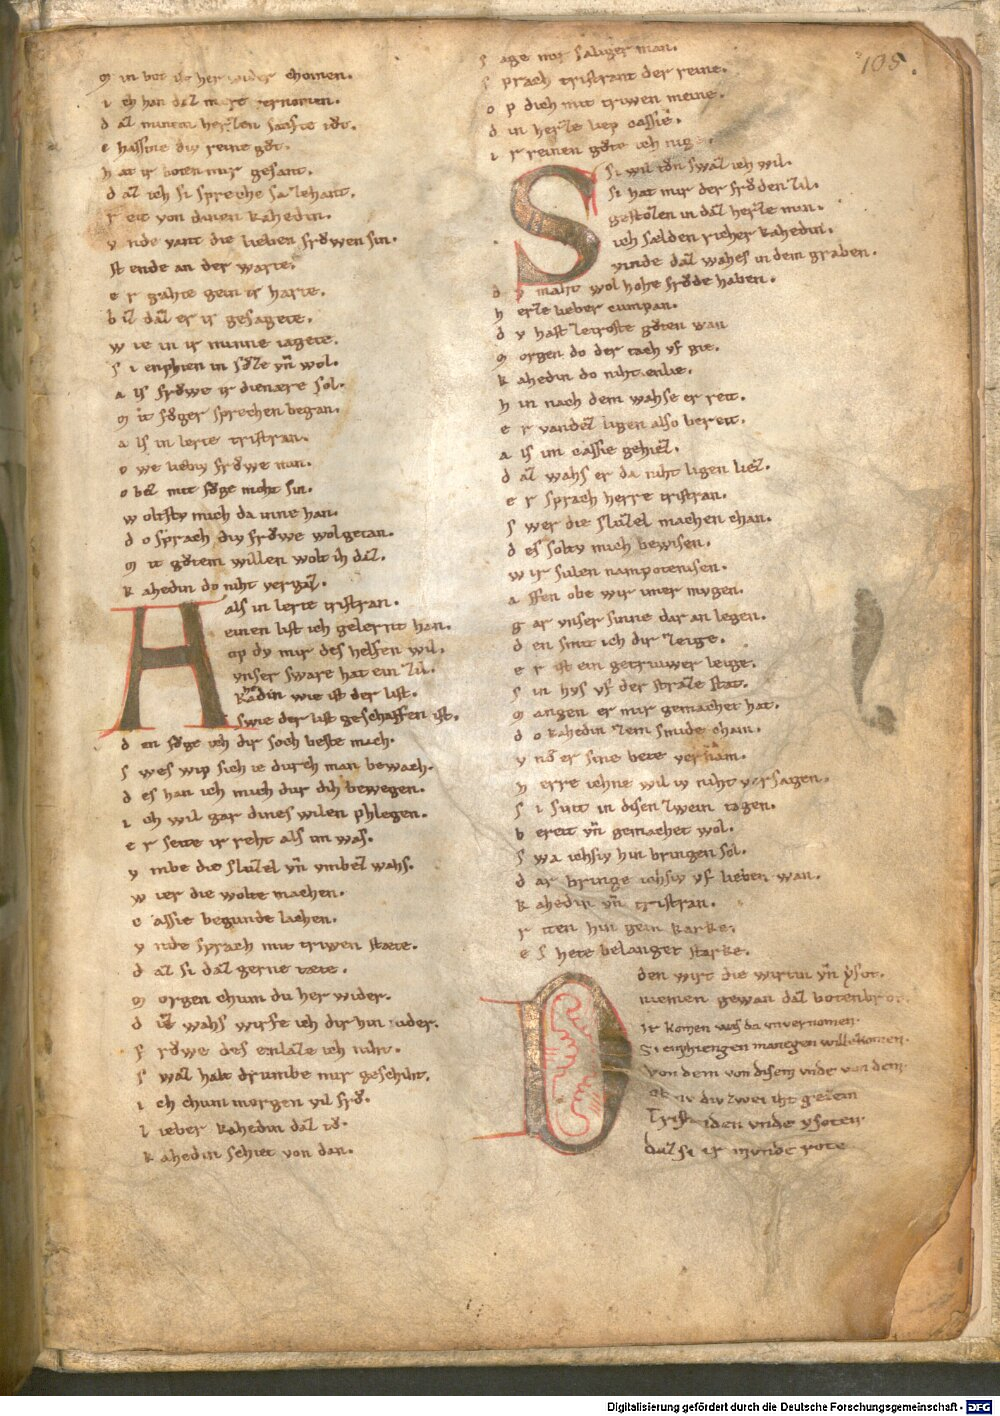 105.
m in bot do her wider chomen.
i ch han daz mære vernomen.
d az minem herzen sanfte tv̊t.
c hassine div reine gv̊t.
h at ir boten mir gesant.
d az ich si spreche sa zehant.
r eit von dinen kahedin.
v nde vant die lieben frowen sin.
st ende an der warte.
e r gahte gein ir harte.
b iz daz er ir gesagete.
w ie in ir minne iagete.
s i enphien in sv̊ze vn̄ wol.
a ls frowe ir dienære sol.
m it fůger sprechen began.
a ls in lerte tristran.
o we liebiv frowe min.
o bez mit fůge moht sin.
w oltstv mich da inne han.
d o sprach div frowe wolgetan.
m it gůtem willen wolt ih daz.
k ahedin do niht vergaz.
A als in lerte tristran.
einen list ich gelernt han.
op dv mir des helfen wil.
vnser sware hat ein zil.
kadin wie ist der list.
swie der list geschaffen ist.
d en fůge ich dir so ich beste mach.
s wes wip sich ie durch man bewach.
d es han ich mich dur dih bewegen.
i ch wil gar dines wilen phlegen.
e r seite ir reht als im was.
v mbe die sluzel vn̄ vmbez wahs.
w ier die wolte machen.
c assie begunde lachen.
v nde sprach mit triwen stæte.
d az si daz gerne tæte.
m orgen chum du her wider.
d iz wahs wirfe ich dir hin nider.
f rowe des enlaze ich niht.
s waz halt drumbe mir geschiht.
i ch chum morgen vil frů.
l ieber kahedin daz tů.
k ahedin schiet von dan.
s age mir saliger man.
s prach tristrant der reine.
o p dich mit triwen meine.
d in herze liep cassie.
i r reinen gůte ich nige
S Si wil tůn swaz ich wil.
si hat mir der froden zil.
gestozen in daz herze min.
ich sælden richer kahedin.
vinde daz wahes in dem graben.
d v maht wol hohe frode haben.
h erze lieber cumpan.
d v hast zetroste gůten wan
m orgen do der tach vf gie.
k ahedin do niht enlie.
h in nach dem wahse er reit.
e r vandez ligen also bereit.
a ls im cassie gehiez.
d az wahs er da niht ligen liez.
e r sprach herre tristran.
s wer die sluzel machen chan.
d es soltv mich bewisen.
w ir sulen nampotenisen.
a ffen obe wir imer mvgen.
g ar vnser sinne dar an legen.
d en smit ich dir zeige.
e r ist ein getriuwer leige.
s in hvs vf der straze stat.
m angen er mir gemachet hat.
d o kahedin zem smide cham.
v nd er sine bete vernam.
h erre ichne wil iv niht versagen.
s i sint in disen zwein tagen.
b ereit vn̄ gemachet wol.
s wa ichsiv hin bringen sol.
d ar bringe ichsiv vf lieben wan.
k ahedin vn̄ tristran.
r iten hin gein karke.
e s hete belanget starke.
D den wirt die wirtin vn̄ ysot.
niemen gewan daz botenbrot.
Ir komen was da unvernomen.
Si enphiengen manegen willekomen.
von dem von disem vnde von dem
ob ir div zwei iht gezem
Trist iden vnde ysoten.
Daz si ir mvnde rote
Digitalisierung gefördert durch die Deutsche Forschungsgemeinschaft - DFG